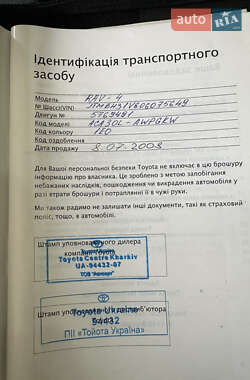 AUTO RIA
Ідентифікація транспортного
засобу
Модель RAV-4
№ Шассі(VIN) JTMBH31V606075649
Двигун № 5769491
Код моделі ACA30L-AWPGKW
Код кольору 1E0
Код оздоблення
Дата продажу 8.07.2008
Для Вашої персональної безпеки Toyota не включає в цю брошуру
інформацію про власника. Це зроблено з метою запобігання
небажаних наслідків, пошкодження чи викрадення автомобіля у
разі втрати брошури і потраплянні її в чужі руки.
Також радимо не залишати інші документи, такі як страховий
поліс, тощо, в автомобілі.
Штамп уповноваженого дилера
компанії Toyota
Toyota Centre Kharkiv
UA-94432-07
Штамп уповноваженого дистриб'ютора
Toyota Ukraine
94432
ПІІ «Тойота Україна»